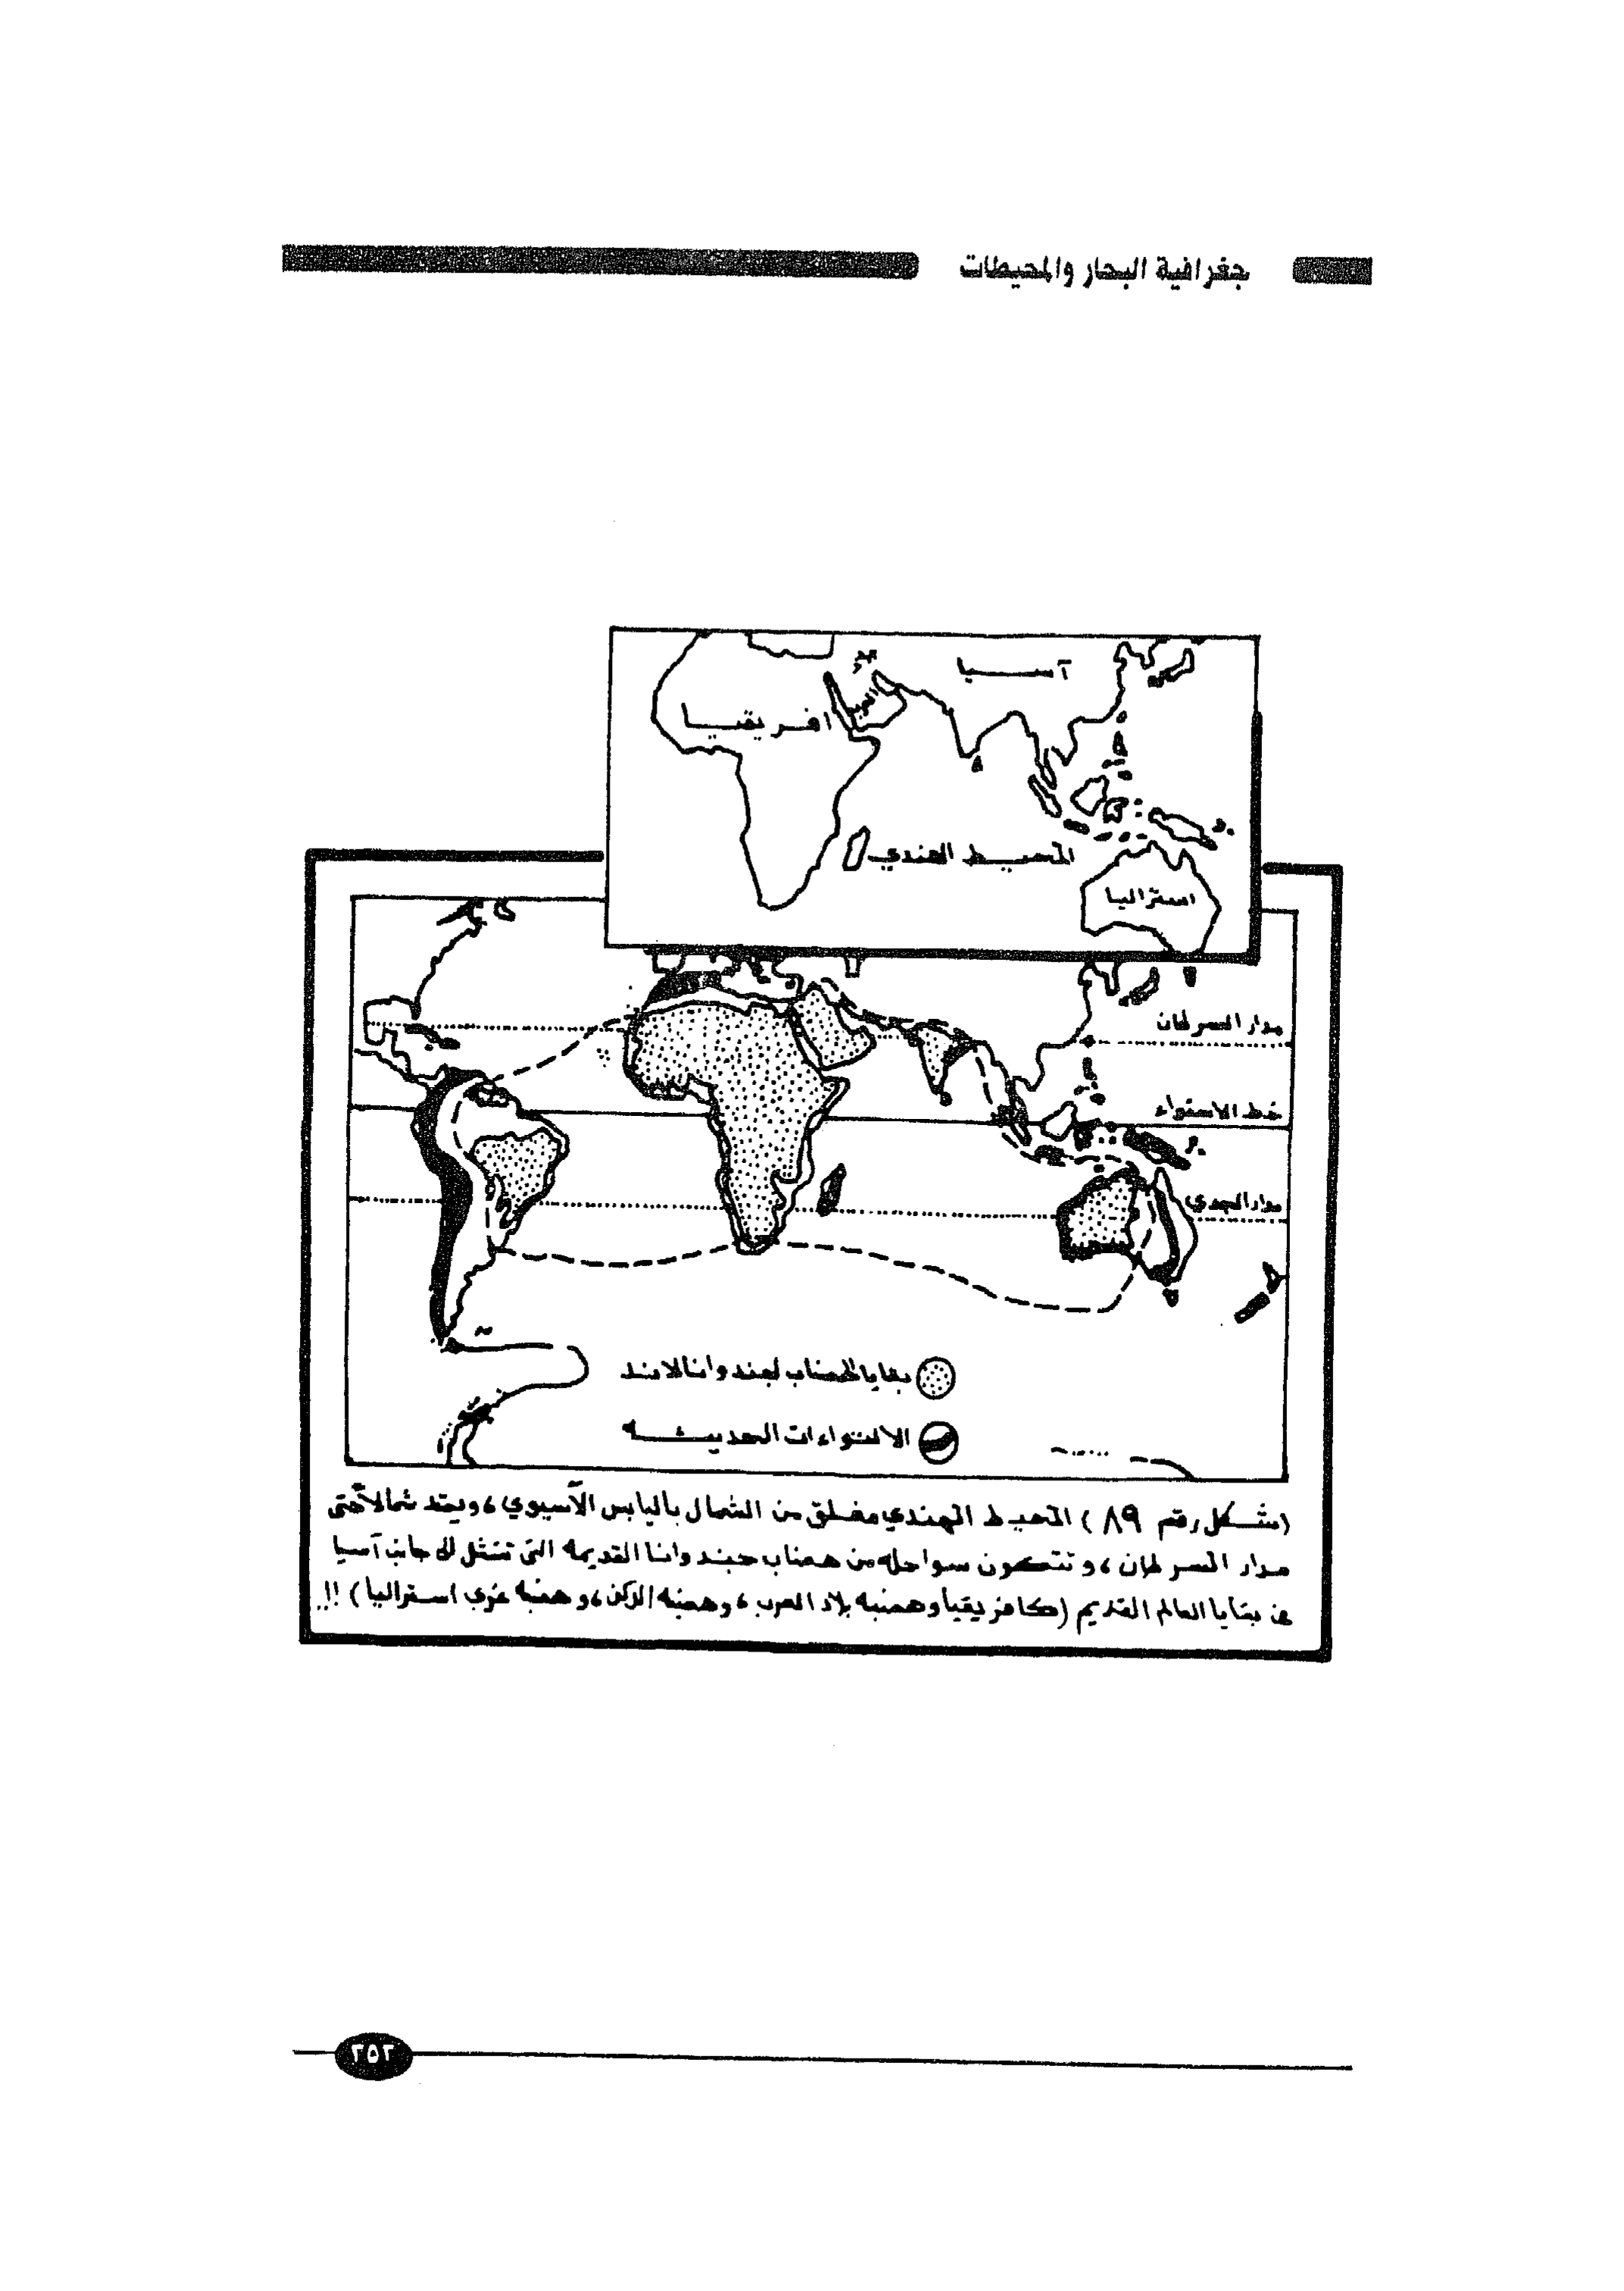 جغرافية البحار والمحيطات
آسيا
افريقيا
المحيط الهندي
استراليا
مدار السرطان
خط الاستواء
مدار الجدي
بقايا الهضاب لجندوانالاند
الالتواءات الحديثه
(شكل رقم ٨٩) المحيط الهندي مغلق من الشمال باليابس الآسيوي، ويمتد شمالا حتى
مدار السرطان، وتتكون سواحله من هضاب جندوانا القديمه التى تتمثل الى جانب آسيا
فى بقايا العالم القديم (كافريقيا وهضبه بلاد العرب، وهضبه الدكن، وهضبه غربي استراليا) !!..
٢٥٢